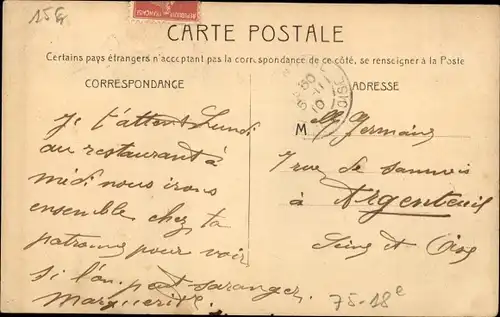 15 f
REPUBLIQUE FRANÇAISE
CARTE POSTALE
Certains pays étrangers n'acceptant pas la correspondance de ce côté, se renseigner à la Poste
CORRESPONDANCE
Je t'attent Lundi
au restaurant à
midi nous irons
ensemble chez ta
patronne pour voir
si l'on peut saranger
Marguerite
ADRESSE
M Germaine
7 rue de sannois
à Argenteuil
Seine et Oise
75-18e